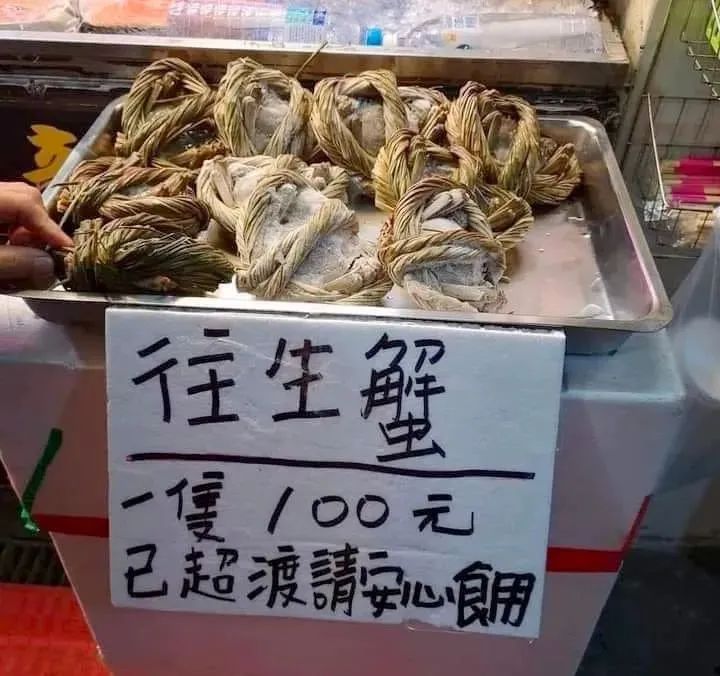 往生蟹
一隻 100元
已超渡請安心食用